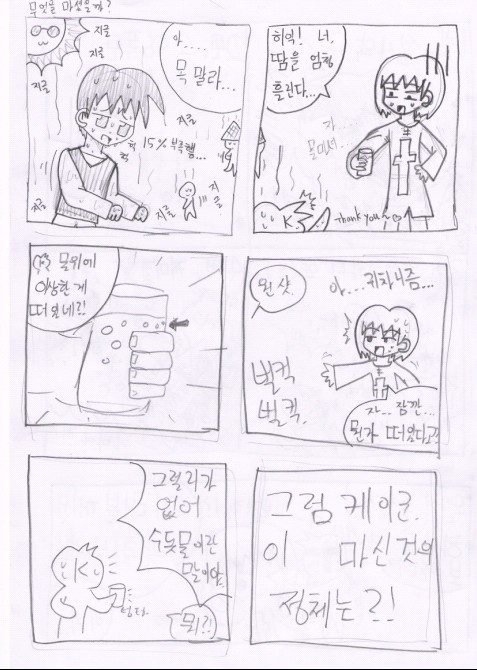 무엇을 마셨을까?
지글
지글
지글
아....
목 말라...
지글
헉
헉
15% 부족행...
지글
지글
지글
히익! 너,
땀을 엄청
흘린다...
자...
물이네...
K.
Thank you~♡
물위에
이상한 게
떠 있네?!
원 샷.
아... 귀차니즘...
벌컥
벌컥.
자.. 잠깐...
뭔가 떠있다고?!
그럴리가
없어
수돗물이란
말이야.
K
뭐?!
그럼 케이군.
이 마신것의
정체는?!